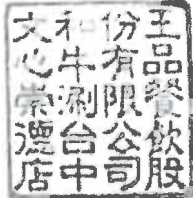 王品餐飲股
份有限公司
和牛涮台中
文心崇德店